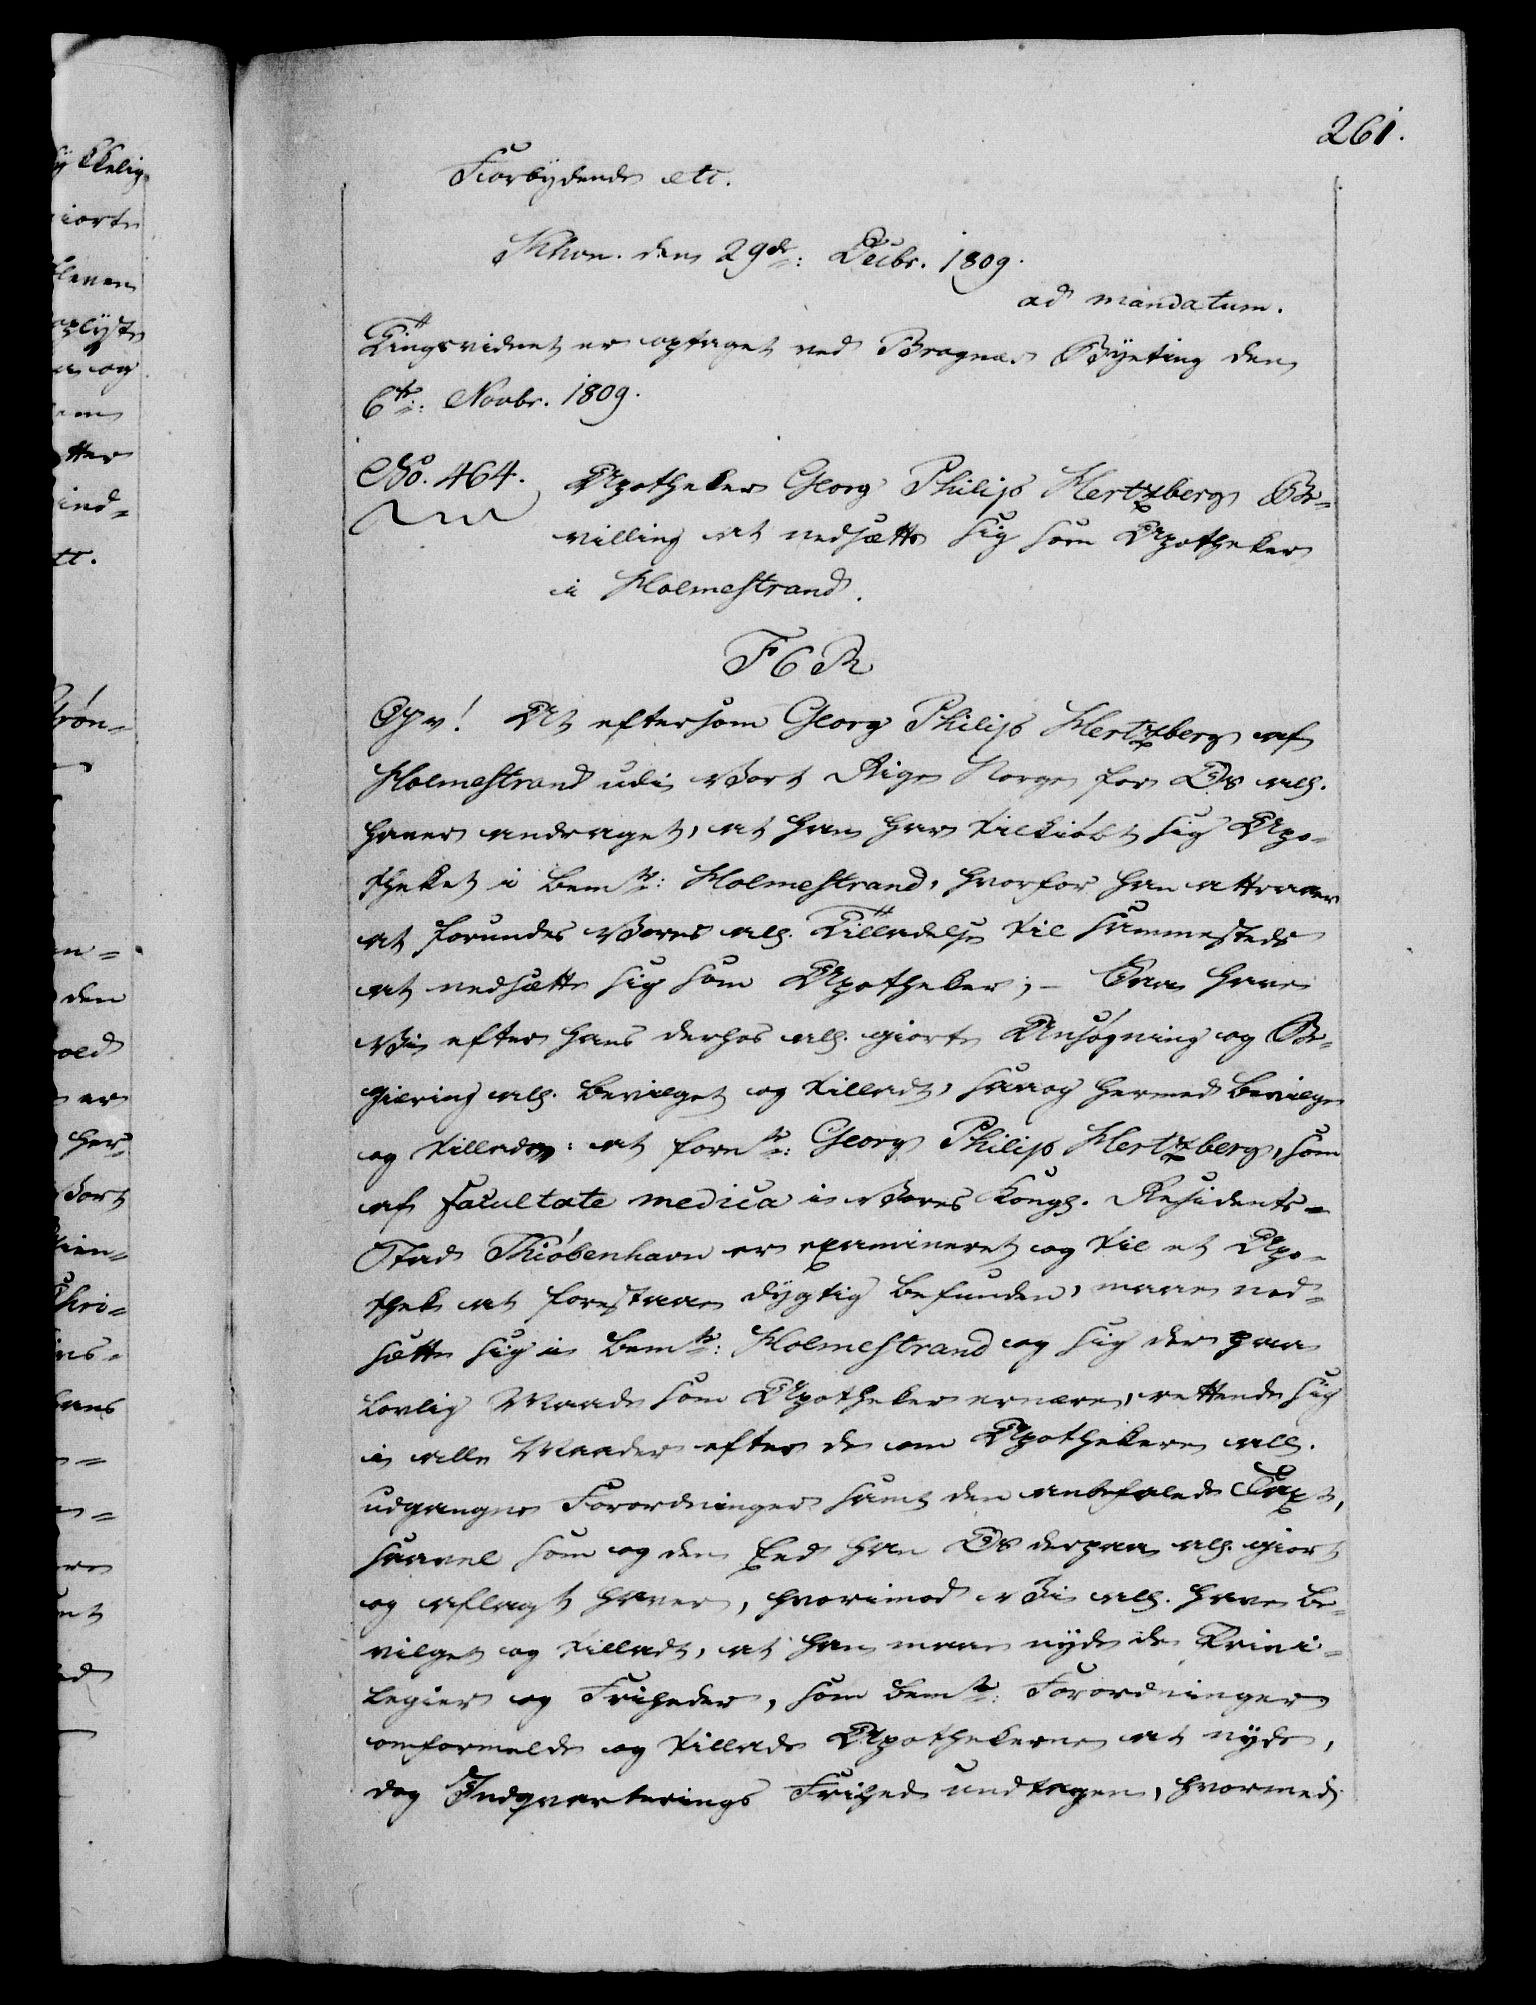 261.
Forbydende etc.
Khvn. den 29de: Decbr. 1809.
ad mandatum.
Tingsvidnet er optaget ved Bragnæs Byeting den
6te: Novbr. 1809.
No. 464. Apotheker Georg Philip Hertzberg Be-
villing at nedsætte sig som Apotheker
i Holmestrand.
F 6 R
G: v! At eftersom Georg Philip Hertzberg af
Holmestrand udi Vort Rige Norge for Os all.
haver andraget, at han har tilkiøbt sig Apo-
theket i bemte: Holmestrand, hvorfor han attraaer
at forundes Vores all. Tilladelse til sammesteds
at nedsætte sig som Apotheker; - Saa have
Vi efter hans derhos all. giorte Ansøgning og Be-
giering all. bevilget og tilladt, saa og hermed bevilge
og tillade: at fornte: Georg Philip Hertzberg, som
af facultate medica i Vores Kongl. Residents-
Stad Kiøbenhavn er examineret og til et Apo-
thek at forestaae dygtig befunden, maae ned-
sætte sig i bemte: Holmestrand og sig der paa
lovlig Maade som Apotheker ernære, rettende sig
i alle Maader efter de om Apothekere all.
udgangne Forordninger samt den anbefalede Taxt,
saavel som og den Eed han Os derpaa all. giort
og aflagt haver, hvorimod Vi all. have be-
vilget og tilladt, at han maae nyde de Privi-
legier og Friheder, som bemte: Forordninger
omformelde og tillade Apothekerne at nyde,
dog Indqvarterings Frihed undtagen, hvormed